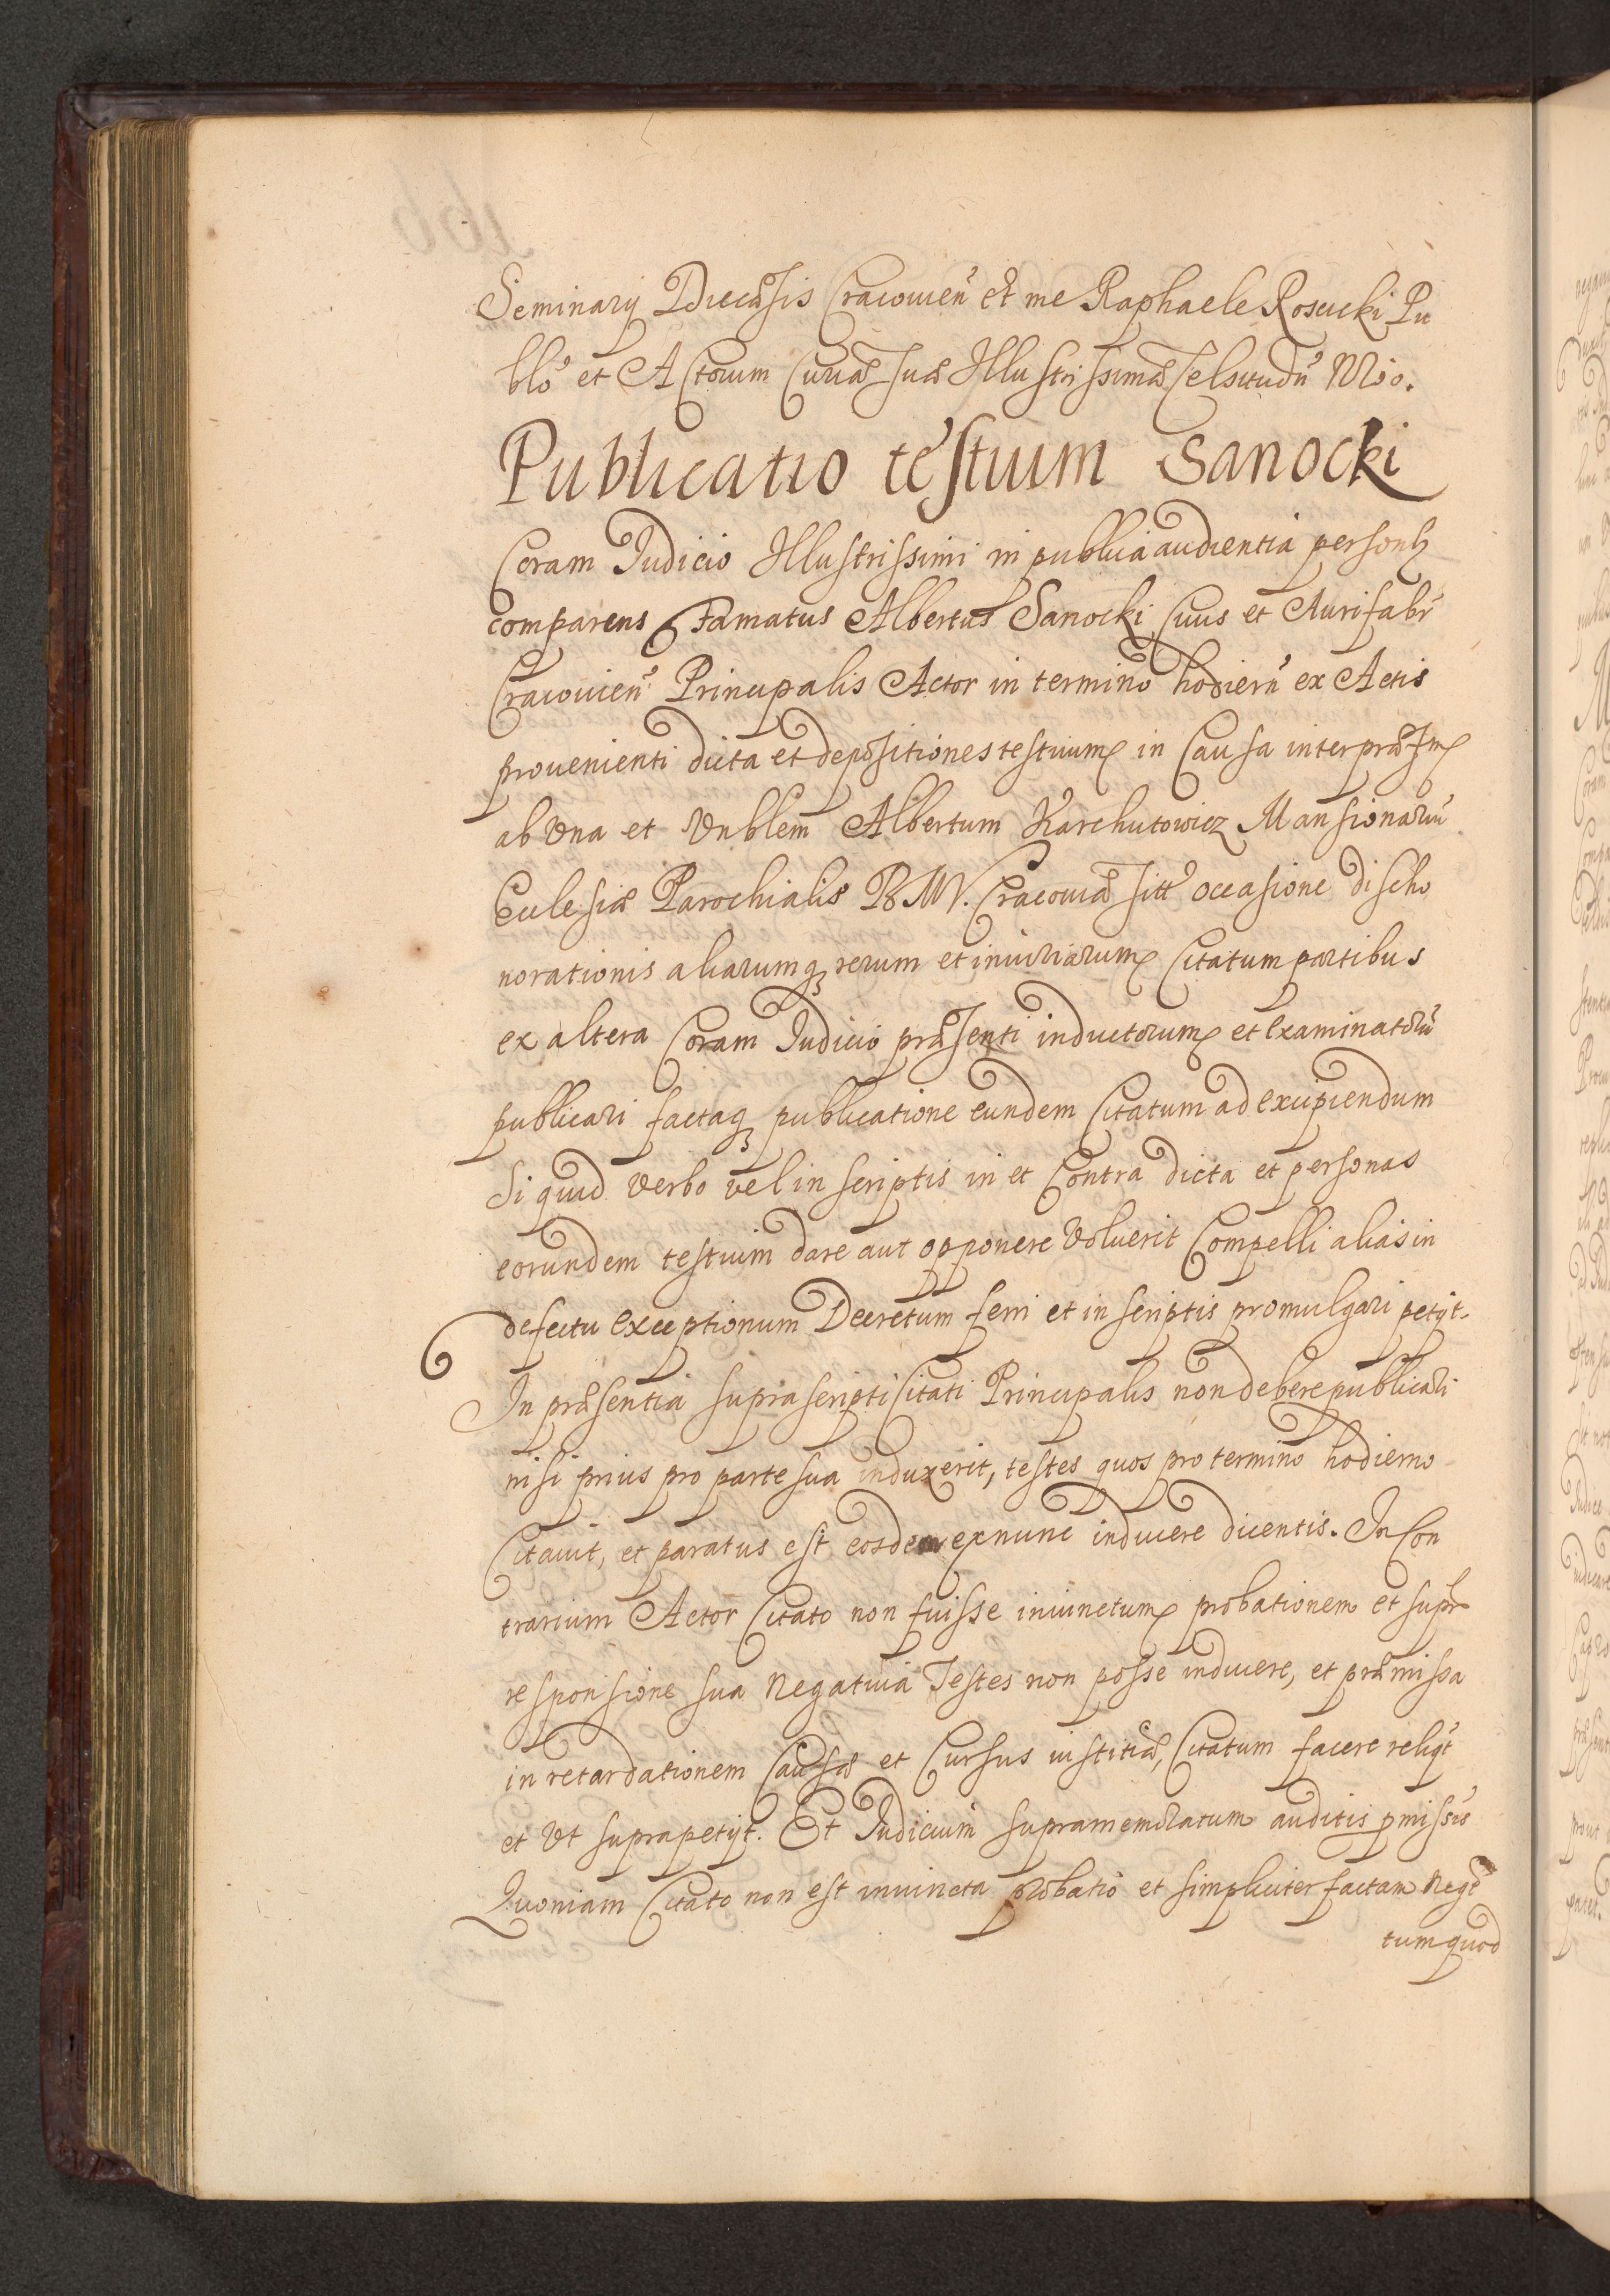 Seminarij Diecæsis Cracouien̄ et me Raphaele Rosucki Pu
blo et Actorum Curiæ suæ Illustrissimæ Celsitudn̄ Nrio.
Publicatio testium Sanocki
Coram Iudicio Illustrissimi in publica audientia personlr
comparens Famatus Albertus Sanocki Ciuis et Aurifabr
Cracouien̄ Principalis Actor in termino hodiern̄ ex Actis
prouenienti dicta et depositiones testium in Causa inter præsm
ab Vna et Vnblem Albertum Karchutowicz Mansionariū
Ecclesiæ Parochialis BMV. Cracouiæ sitt occasione discho
norationis aliarumq rerum et iniuriarum Citatum partibus
ex altera Coram Iudicio præsenti inductorum et examinatorū
publicari factaq publicatione eundem Citatum ad excipiendum
Si quid Verbo vel in scriptis in et Contra dicta et personas
eorundem testium dare aut opponere Voluerit Compelli alias in
defectu exceptionum Decretum ferri et in scriptis promulgari petijt.
In præsentia suprascripti Citati Principalis non debere publicari
nisi prius pro parte sua induxerit, testes quos pro termino hodierno
Citauit, et paratus est eosdem ex nunc inducere dicentis. In Con
trarium Actor Citato non fuisse iniunctum probationem et supr
responsione sua Negatiua Testes non posse inducere, et præmissa
in retardationem Causæ et Cursus iustitiæ, Citatum facere religt
et Vt supra petijt. Et Iudicium supramemoratum auditis pmissis
Quoniam Citato non est iniuncta probatio et simpliciter factam Nege
tum quod